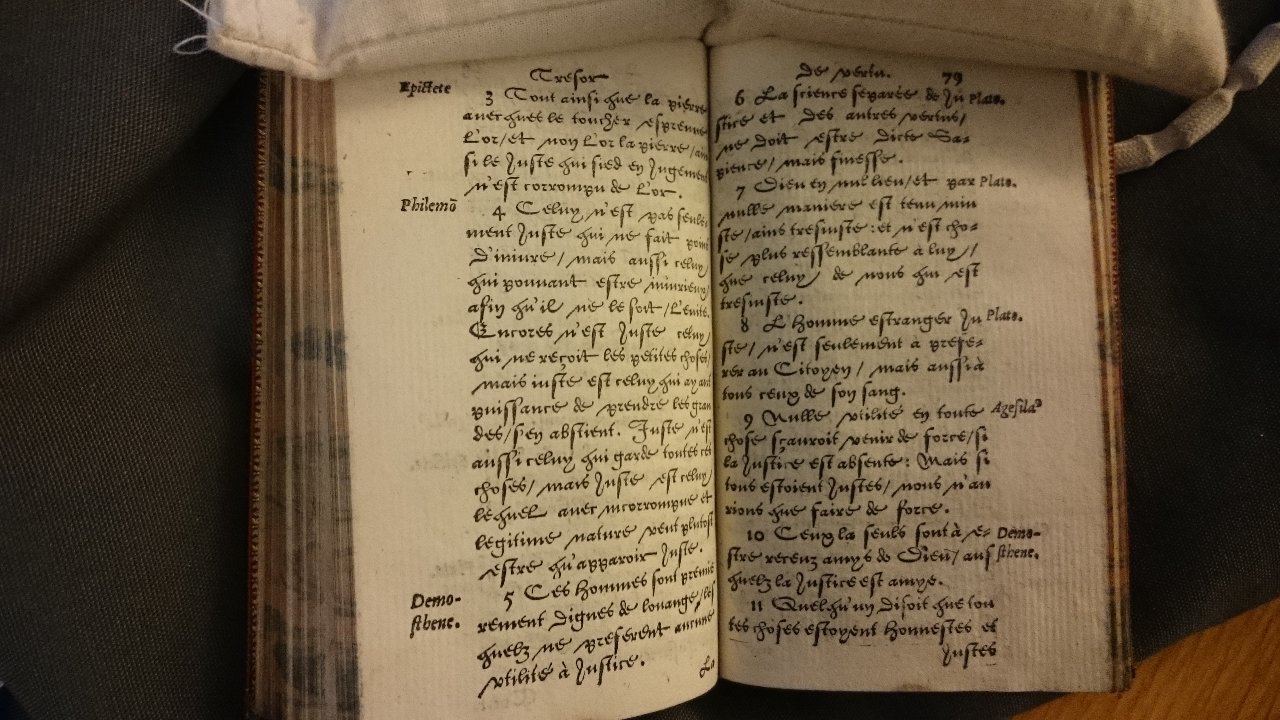 Tresor
Epictete
3 Tout ainsi que la pierre
avecques le toucher espreuve
L'or/et non L'or la pierre/ain
si le Juste qui sied en Jugement
n'est corrompu de L'or.
Philemō
4 Celuy n'est pas seule-
ment Juste qui ne fait point
d'iniure/ mais aussi celuy
qui pouuant estre iniurieux
afin qu'il ne le soit/L'euite.
Encores n'est Juste celuy
qui ne reçoit les petites choses/
mais iuste est celuy qui ayant
puissance de prendre les gran
des/s'en abstient. Juste n'est
aussi celuy qui garde toutes ces
choses/ mais Juste est celuy/
lequel auec incorrompue et
legitime nature veut plutost
estre qu'apparoir Juste.
Demo-
sthene.
5 Ces hommes sont premie
rement dignes de louange/les
quelz ne preferent aucune
vtilité à Justice.
La
de vertu. 79
6 La science separée de Ju Plato.
stice et des autres vertus/
ne doit estre dicte Sa-
pience/ mais finesse.
7 Dieu en nul lieu/et par Plato.
nulle maniere est tenu iniu
ste/ains tresiuste: et n'est cho-
se plus ressemblante à luy/
que celuy de nous qui est
tresiuste.
8 L'homme estranger Ju Plato.
ste/ n'est seulement à prefe-
rer au Citoyen/ mais aussi à
tous ceux de son sang.
9 Nulle vtilité en toute Agesila⁹
chose sçauroit venir de force/si
la Justice est absente: Mais si
tous estoient Justes/ nous n'au
rions que faire de force.
10 Ceux la seuls sont à e- Demo-
stre receuz amys de Dieu/ aus sthene.
quelz la Justice est amye.
11 Quelqu'un disoit que tou
tes choses estoyent honnestes et
Justes